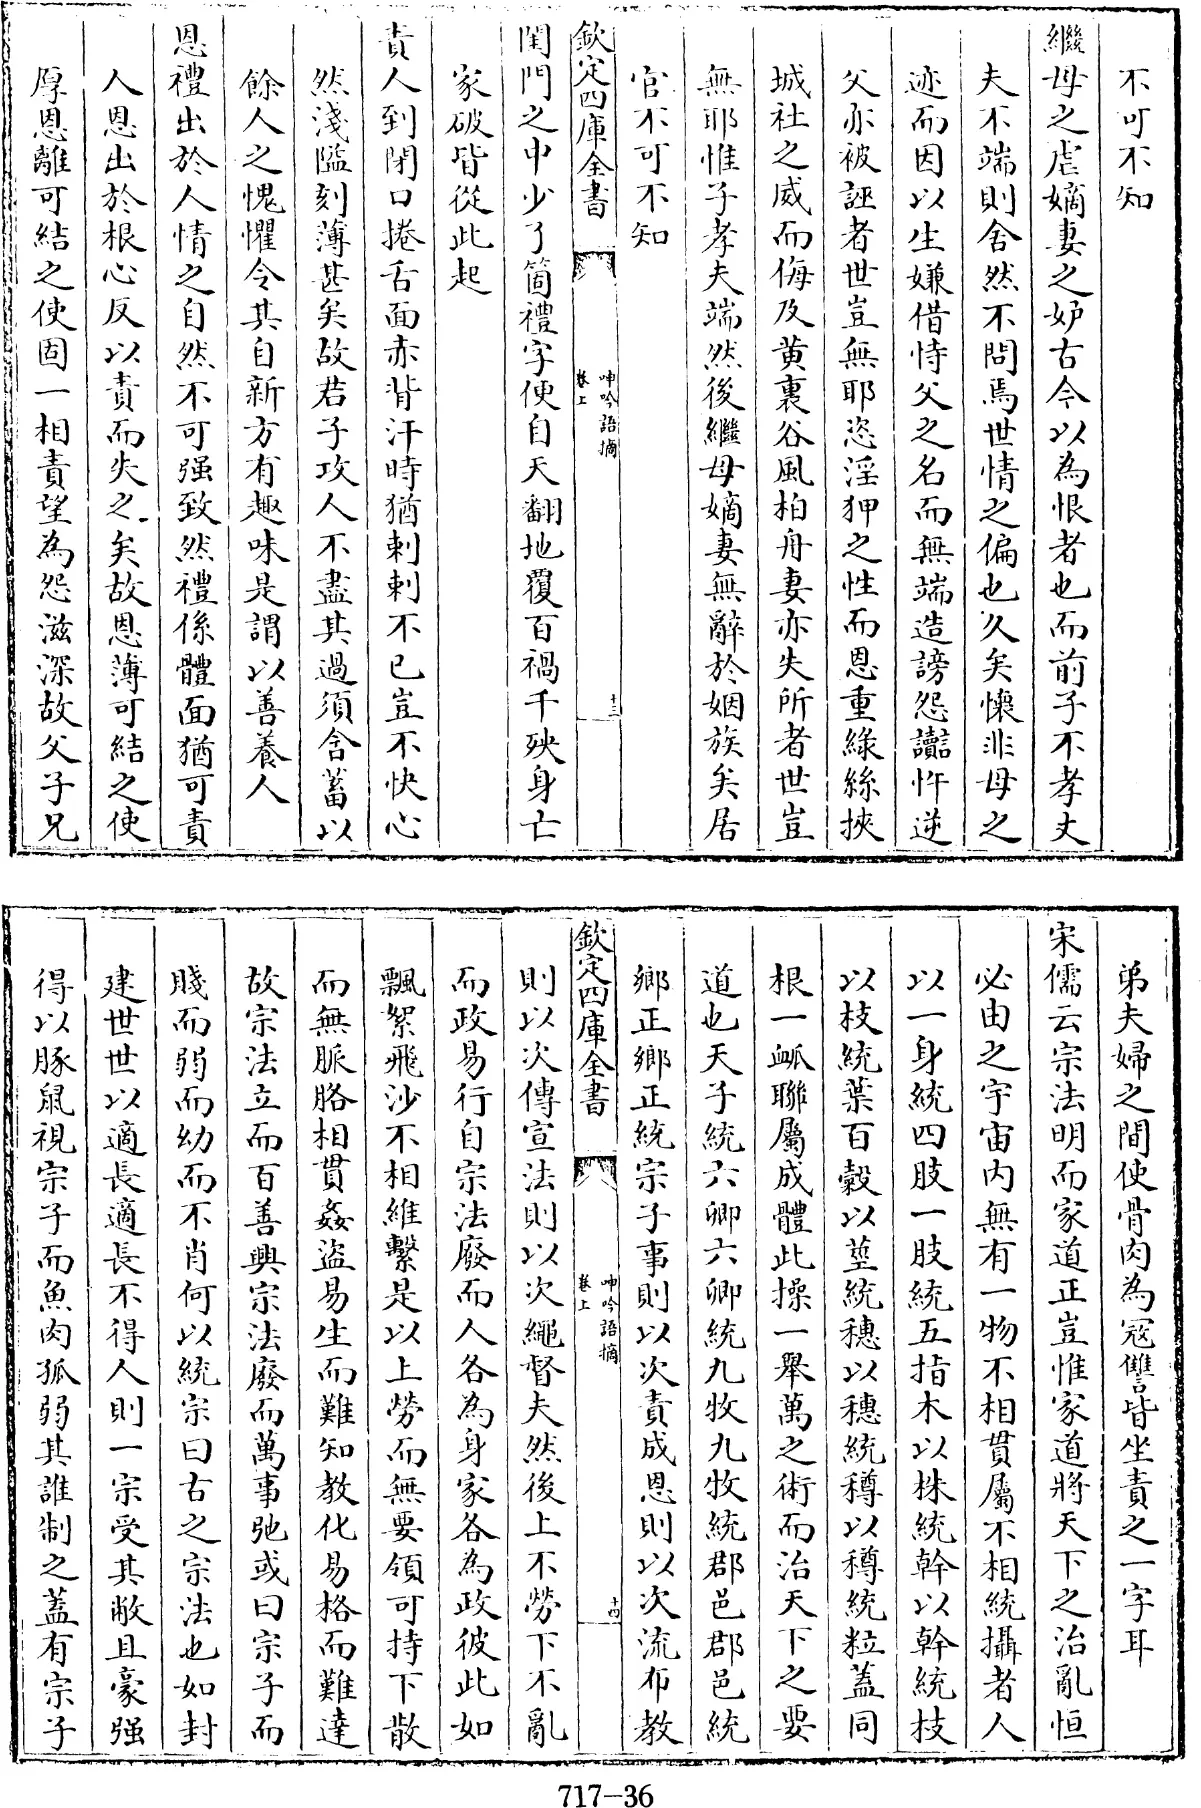 不可不知
繼母之虐嫡妻之妒古今以為恨者也而前子不孝丈
夫不端則舍然不問焉世情之偏也久矣懷非母之
迹而因以生嫌借恃父之名而無端造謗怨讟忤逆
父亦被誣者世豈無耶恣淫狎之性而恩重綠絲挾
城社之威而侮及黄裏谷風柏舟妻亦失所者世豈
無耶惟子孝夫端然後繼母嫡妻無辭於姻族矣居
官不可不知
欽定四庫全書
呻吟語摘
卷上
十三
閨門之中少了箇禮字便自天翻地覆百禍千殃身亡
家破皆從此起
責人到閉口捲舌面赤背汗時猶刺刺不已豈不快心
然淺隘刻薄甚矣故君子攻人不盡其過須含蓄以
餘人之愧懼令其自新方有趣味是謂以善養人
恩禮出於人情之自然不可强致然禮係體面猶可責
人恩出於根心反以責而失之矣故恩薄可結之使
厚恩離可結之使固一相責望為怨滋深故父子兄
弟夫婦之間使骨肉為冦讐皆坐責之一字耳
宋儒云宗法明而家道正豈惟家道將天下之治亂恒
必由之宇宙内無有一物不相貫屬不相統攝者人
以一身統四肢一肢統五指木以株統幹以幹統枝
以枝統葉百穀以莖統穗以穗統稃以稃統粒蓋同
根一衇聯屬成體此操一舉萬之術而治天下之要
道也天子統六卿六卿統九牧九牧統郡邑郡邑統
鄉正鄉正統宗子事則以次責成恩則以次流布教
欽定四庫全書
呻吟語摘
卷上
十四
則以次傳宣法則以次繩督夫然後上不勞下不亂
而政易行自宗法廢而人各為身家各為政彼此如
飄絮飛沙不相維繫是以上勞而無要領可持下散
而無脈胳相貫姦盜易生而難知教化易格而難達
故宗法立而百善興宗法廢而萬事弛或曰宗子而
賤而弱而幼而不肖何以統宗曰古之宗法也如封
建世世以適長適長不得人則一宗受其敝且豪强
得以豚鼠視宗子而魚肉孤弱其誰制之蓋有宗子
717-36